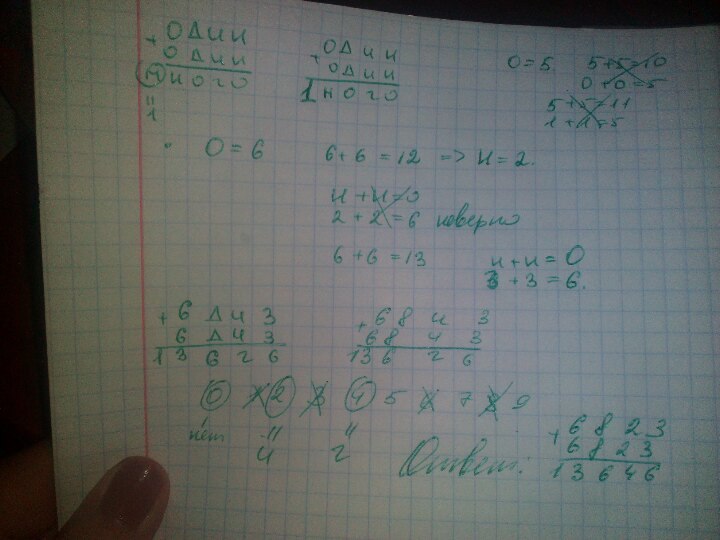 + ОДИН
ОДИН
МНОГО
"
1
+ ОДИН
ОДИН
1НОГО
О=5. 5+5=10
О+О=5
5+5=11
1+1=5
О=6 6+6=12 => Н=2.
Н+Н=О
2+2=6 неверно
6+6=13 Н+Н=О
3+3=6.
+ 6 Д И 3
6 Д И 3
1 3 6 Г 6
+ 6 8 И 3
6 8 И 3
13 6 Г 6
0 1 2 3 4 5 6 7 8 9
нет " "
И Г
Ответ:
+ 6 8 2 3
6 8 2 3
1 3 6 4 6